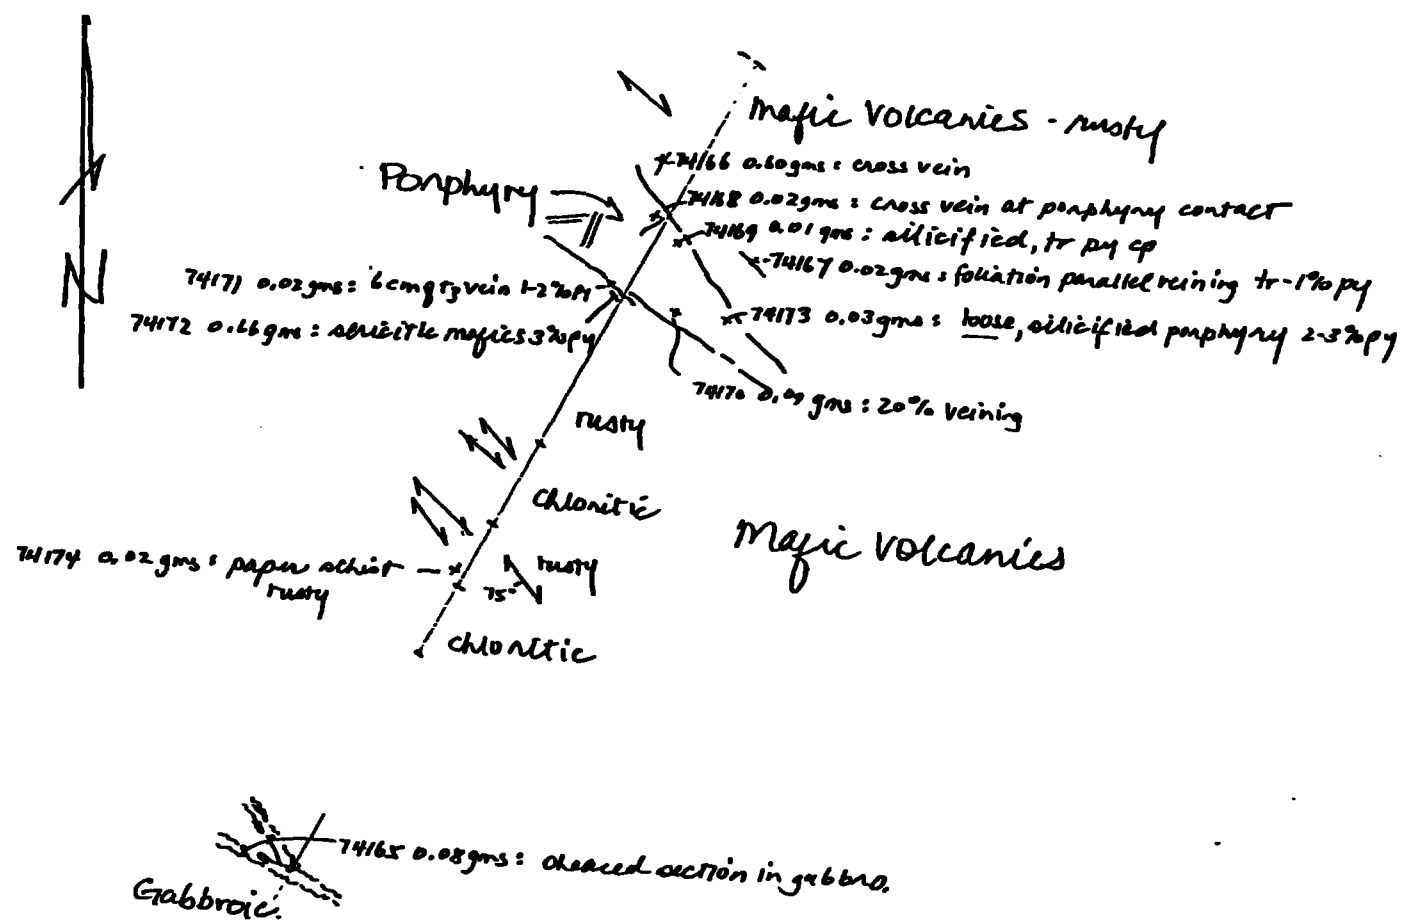 Mafic Volcanics - rusty
74166 0.60gms : cross vein
Porphyry
74168 0.02gms : cross vein at porphyry contact
74169 0.01 gms : silicified, tr py cp
74167 0.02gms : foliation parallel veining tr-1% py
74171 0.02gms : 6cm qtz vein 1-2% py
74173 0.03gms : loose, silicified porphyry 2-3% py
74172 0.66gms : sericitic mafics 3% py
74170 gms : 20% veining
rusty
chloritic
Mafic Volcanics
74174 0.02gms : paper schist
rusty
rusty
75°
chloritic
N
74165 0.08gms : sheared section in gabbro.
Gabbroic.